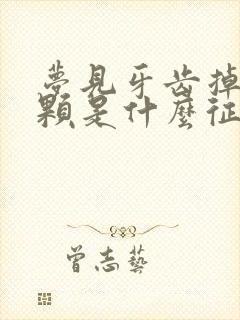 夢見牙齿掉
顆是什麼征
曾志藝